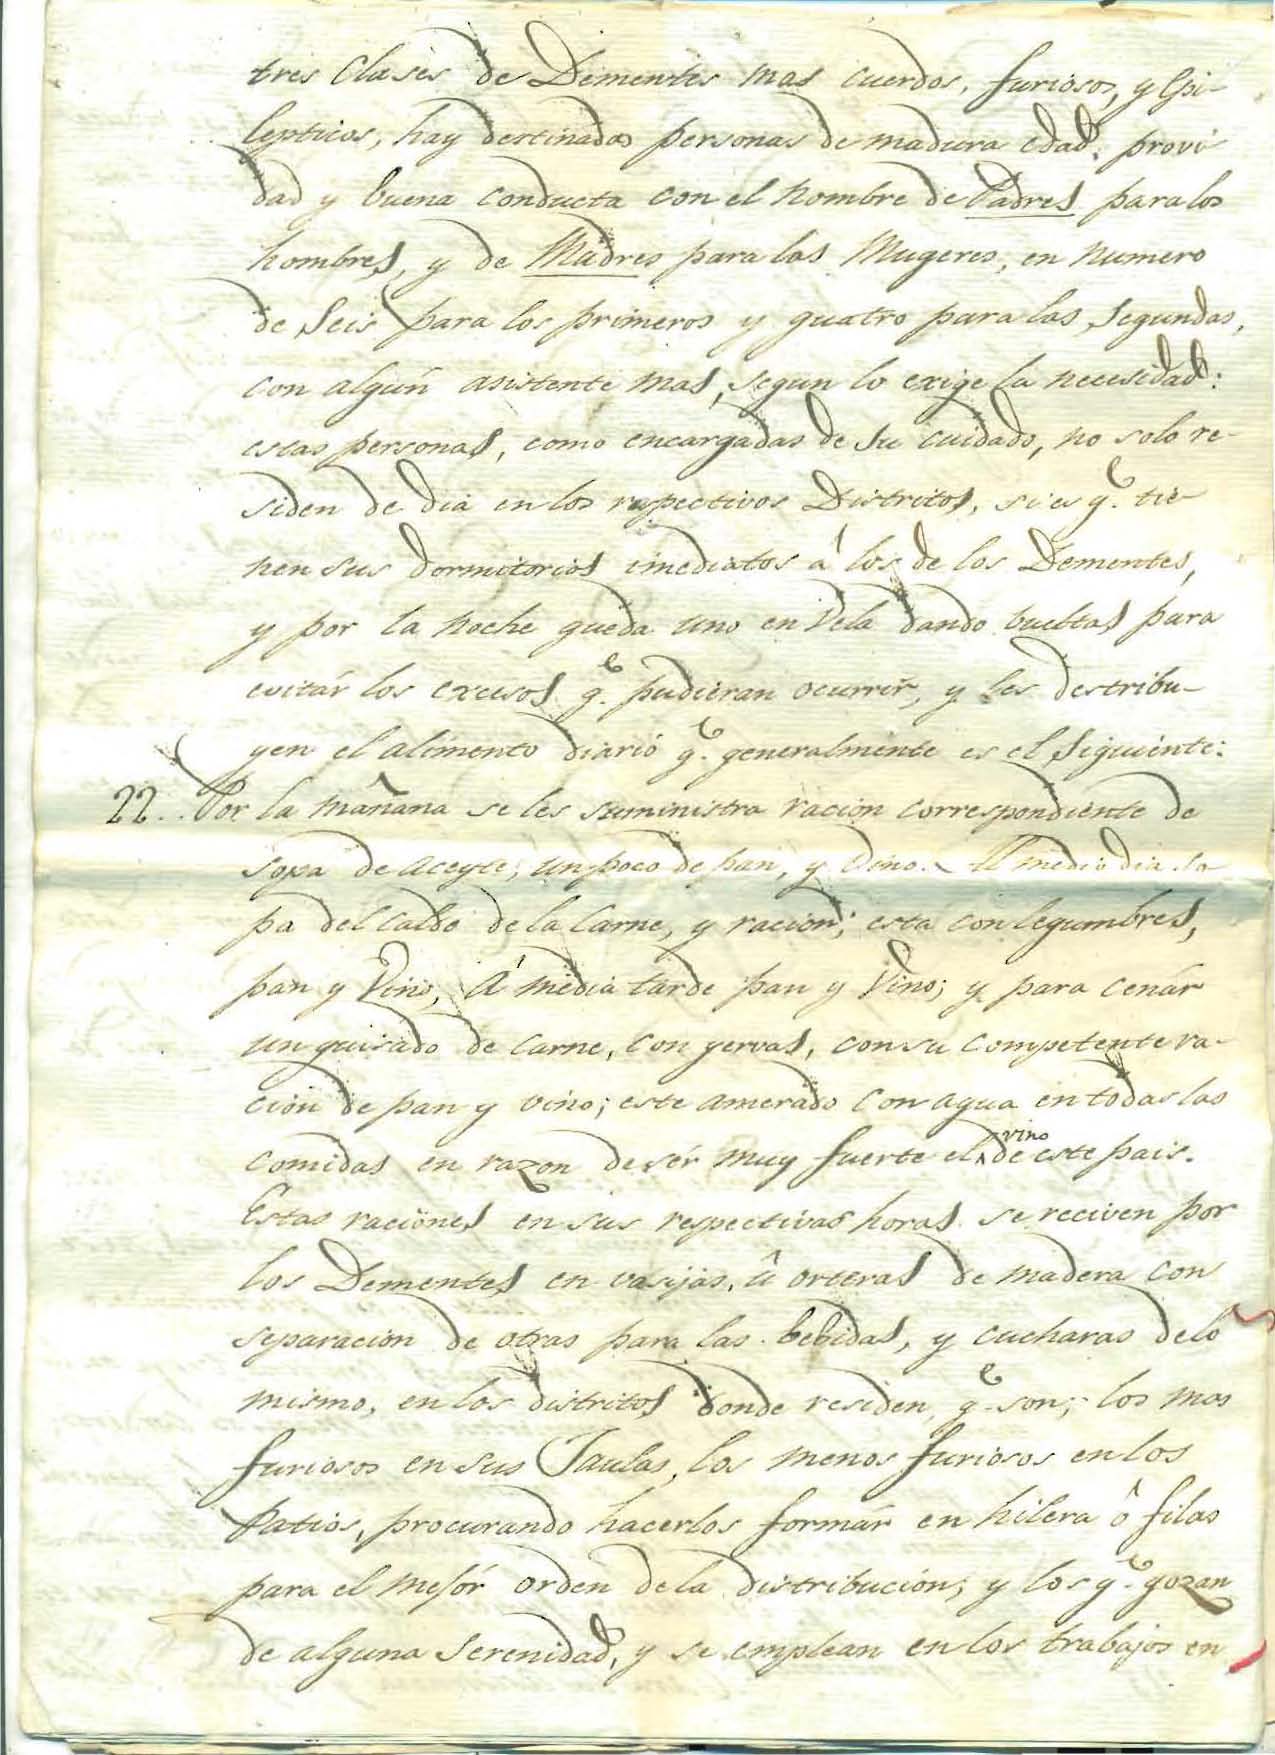 tres Clases de Dementes mas cuerdos, furiosos, y Epi-
lepticos, hay destinadas personas de madura edad, provi
dad y buena conducta con el Nombre de Padres para los
hombres, y de Madres para las Mugeres, en numero
de Seis para los primeros y quatro para las Segundas,
con algun asistente mas, segun lo exige la necesidad:
estas personas, como encargadas de su cuidado, no solo re-
siden de dia en los respectivos Distritos, si es q.e tie-
nen sus dormitorios imediatos á los de los Dementes,
y por la Noche queda uno en Vela dando bueltas para
evitár los excesos q.e pudieran ocurrir, y les destribu-
yen el alimento diario q.e generalmente es el Siguiente:
22.. Por la mañana se les suministra racion correspondiente de
sopa de aceyte, un poco de pan, y Vino. Al medio dia so-
pa del Caldo de la Carne, y racion; esta con legumbres,
pan y Vino, Á media tarde pan y Vino; y para cenár
un guisado de carne, con yervas, con su competente ra-
cion de pan y vino; este amerado con agua en todas las
comidas en razon de sér muy fuerte el vino de este pais.
Estas raciones en sus respectivas horas se reciven por
los Dementes en vasijas, û orteras de madera con
separacion de otras para las bebidas, y cucharas delo
mismo, en los distritos donde residen q.e son; los mas
furiosos en sus Jaulas, los menos furiosos en los
Patios, procurando hacerlos formár en hilera ô filas
para el mejór orden dela distribución; y los q.e gozan
de alguna Serenidad, y se emplean en los trabajos en